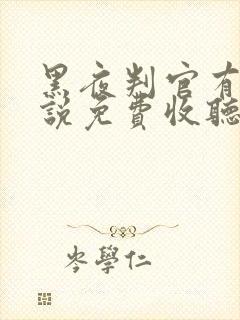 黑夜判官有
說免費收聽
岑學仁